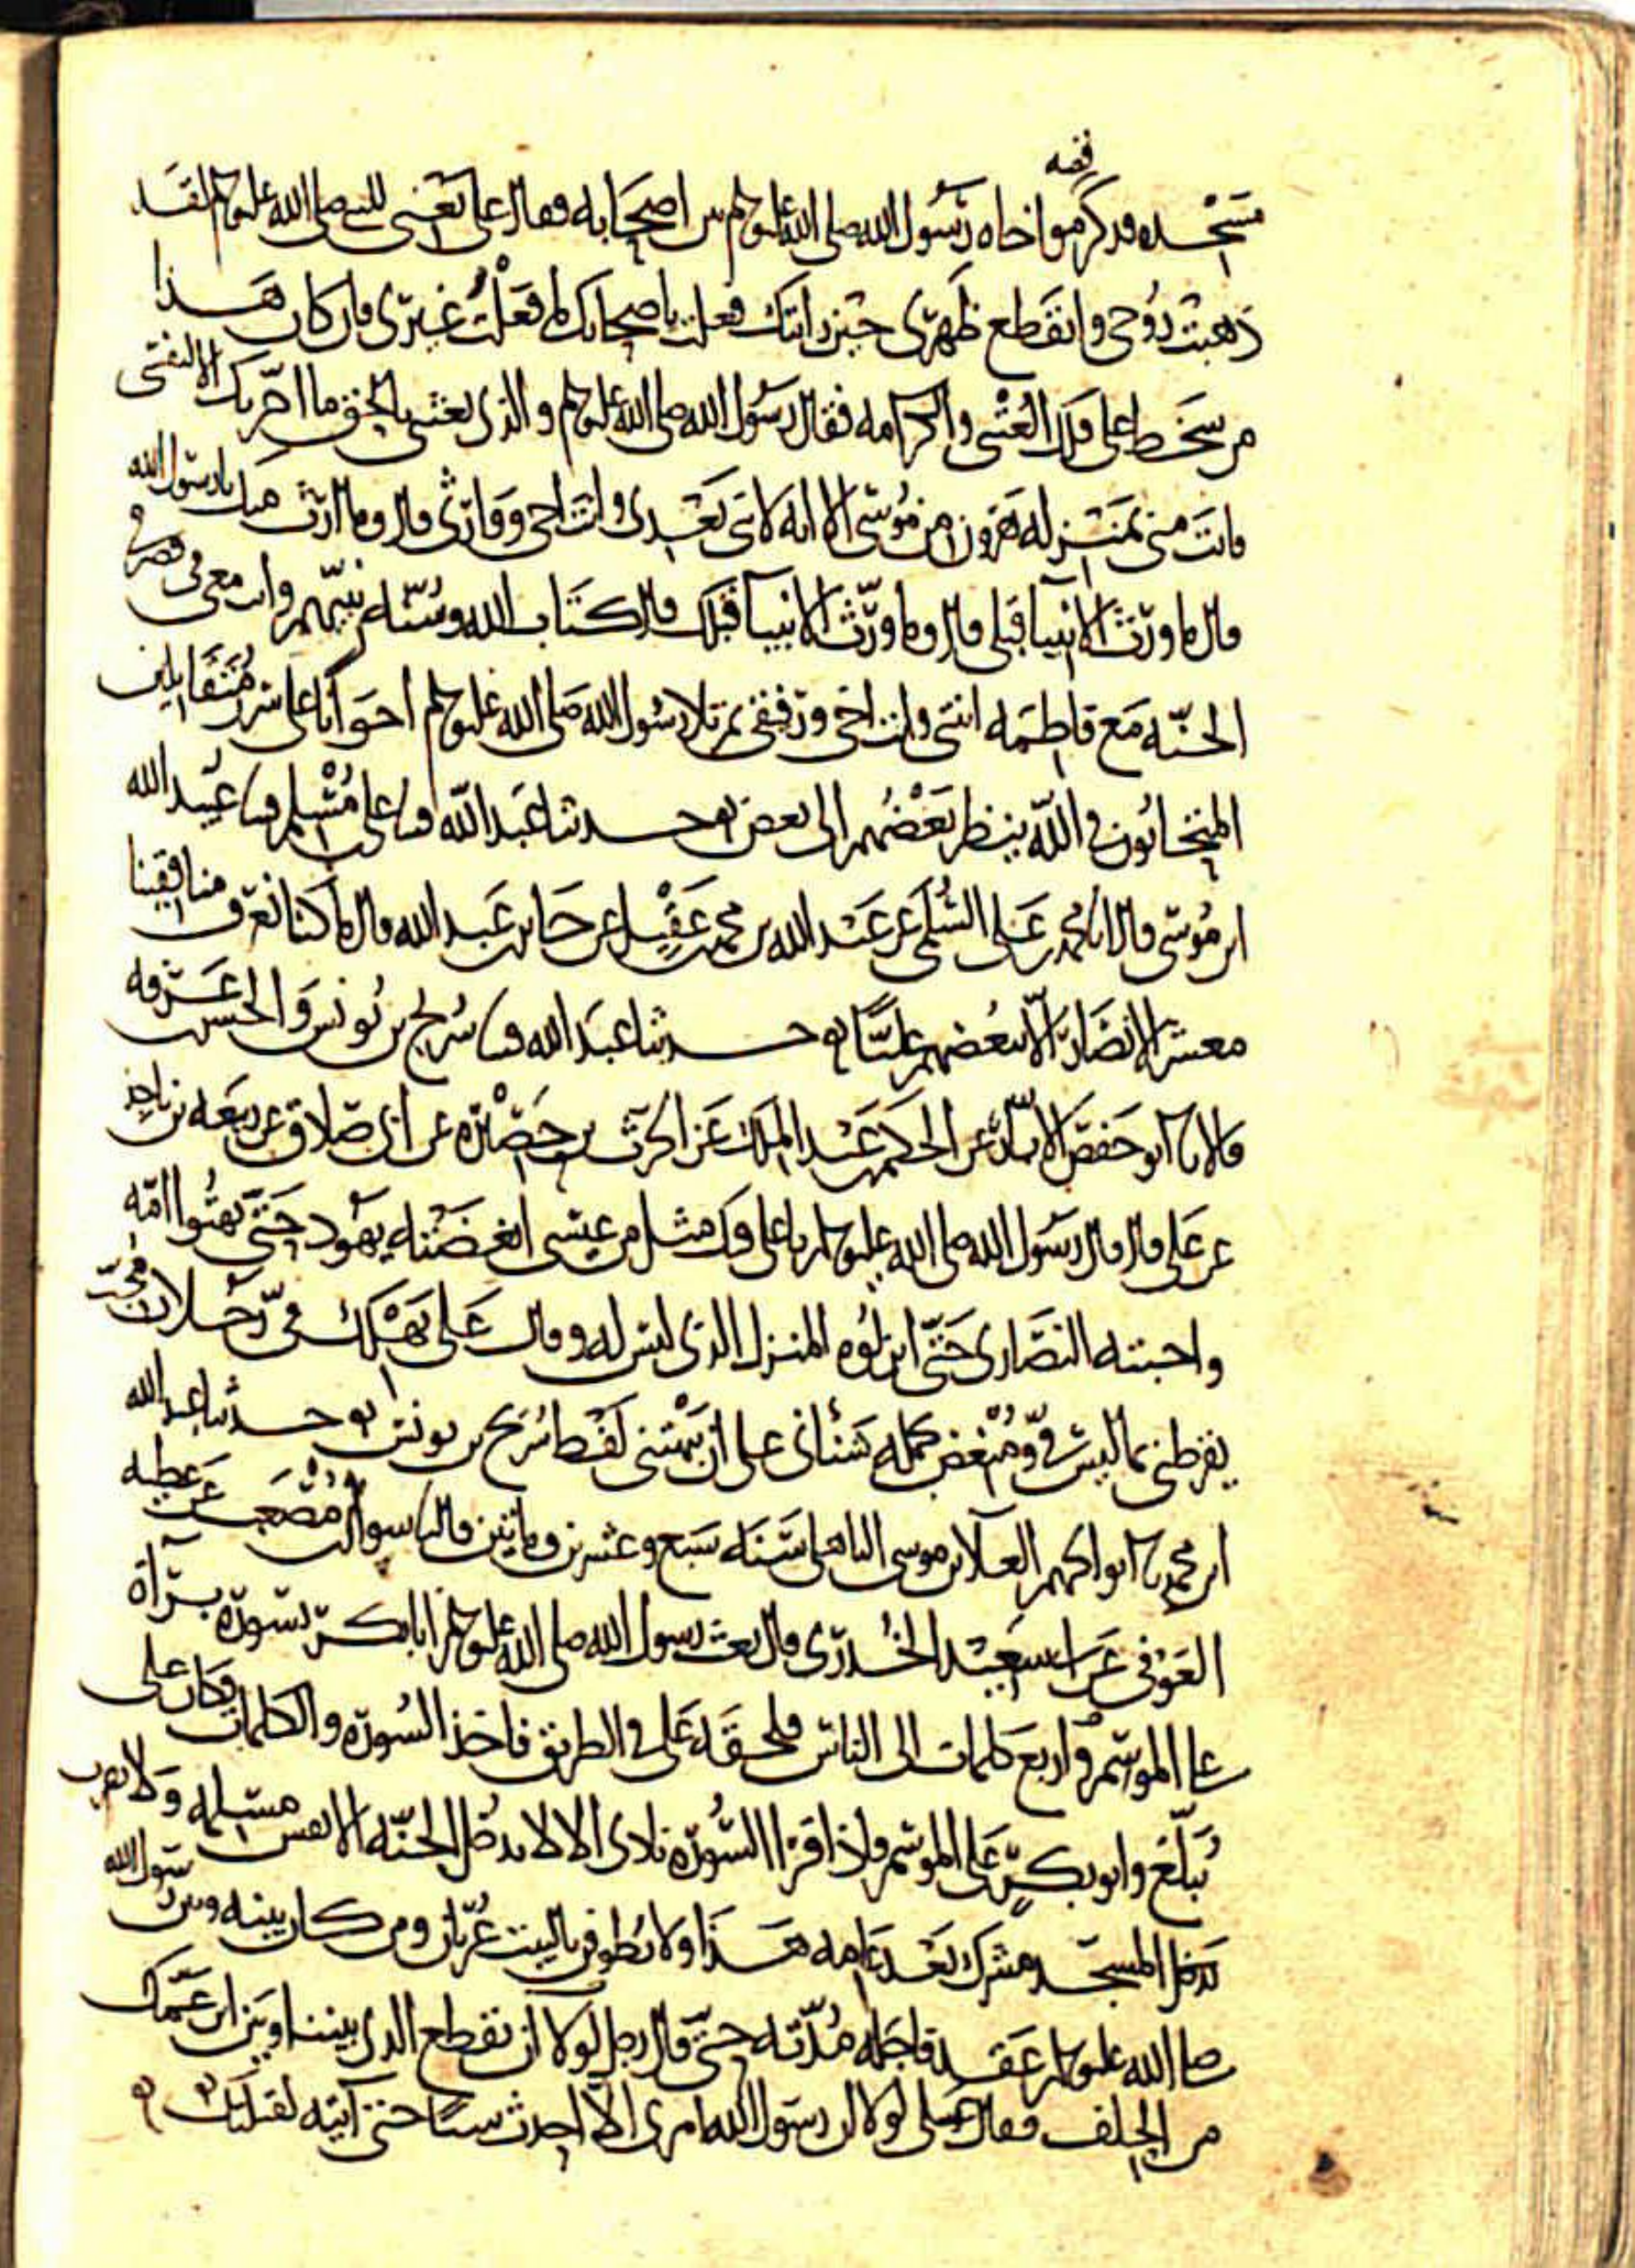 قصه
مسجده فذكر مواخاه رسول الله صلى الله عليه وسلم بين اصحابه فقال على يعنى للنبى صلى الله عليه وسلم لقد
ذهبت روحى وانقطع ظهرى حين رايتك فعلت باصحابك ما فعلت غيرى فان كان هذا
من سخط على فلك العتبى والكرامه فقال رسول الله صلى الله عليه وسلم والذى بعثنى بالحق ما اخرتك الا لنفسى
فانت منى بمنزله هرون من موسى الا انه لا نبى بعدى وانت اخى ووارثى قال وما ارث منك يا رسول الله
قال ما ورث الانبيا قبلى قال وما ورث الانبيا قبلك قال كتاب الله وسنه نبيهم وانت معى فى قصرى فى
الجنه مع فاطمه ابنتى وانت اخى ورفيقى ثم تلا رسول الله صلى الله عليه وسلم اخوانا على سرر متقابلين
المتحابون فى الله ينظر بعضهم الى بعض حدثنا عبد الله على بن مسلم عبيد الله
ابن موسى قال انا محمد بن على السلمى عن عبد الله بن محمد بن عقيل عن جابر بن عبد الله قال ما كنا نعرف منافقينا
معشر الانصار الا ببغضهم عليا حدثنا عبد الله سريج بن يونس والحسن بن عرفه
قالا ابو حفص الابار عن الحكم بن عبد الملك عن الحرث بن حصيره عن ابى صادق عن ربيعه بن ناجذ
عن على قال قال رسول الله صلى الله عليه وسلم يا على فيك مثل من عيسى ابغضته يهود حتى بهتوا امه
واحبته النصارى حتى انزلوه المنزل الذى ليس له وقال على يهلك فى رجلان محب
يقرظنى بما ليس فى ومبغض يحمله شنانى على ان يبهتنى لفظ سريج بن يونس حدثنا عبد الله
ابن محمد ابو الجهم العلا بن موسى الباهلى سنه سبع وعشرين ومايتين قال سوار بن مصعب عن عطيه
العوفى عن ابى سعيد الخدرى قال بعث رسول الله صلى الله عليه وسلم ابا بكر بسوره براة
على الموسم واربع كلمات الى الناس فلحقه على فى الطريق فاخذ السوره والكلمات فكان على
يبلغ وابو بكر على الموسم فاذا قرا السوره نادى الا لا يدخل الجنه الا نفس مسلمه ولا يقرب
يدخل المسجد مشرك بعد عامه هذا ولا يطوفن بالبيت عريان ومن كان بينه وبين رسول الله
صلى الله عليه وسلم عقد فاجله مدته حتى قال رجل لولا ان نقطع الذى بيننا وبين ابن عمك
من الحلف فقال على لولا ان رسول الله امرنى الا احدث شيا حتى آتيه لقتلتك